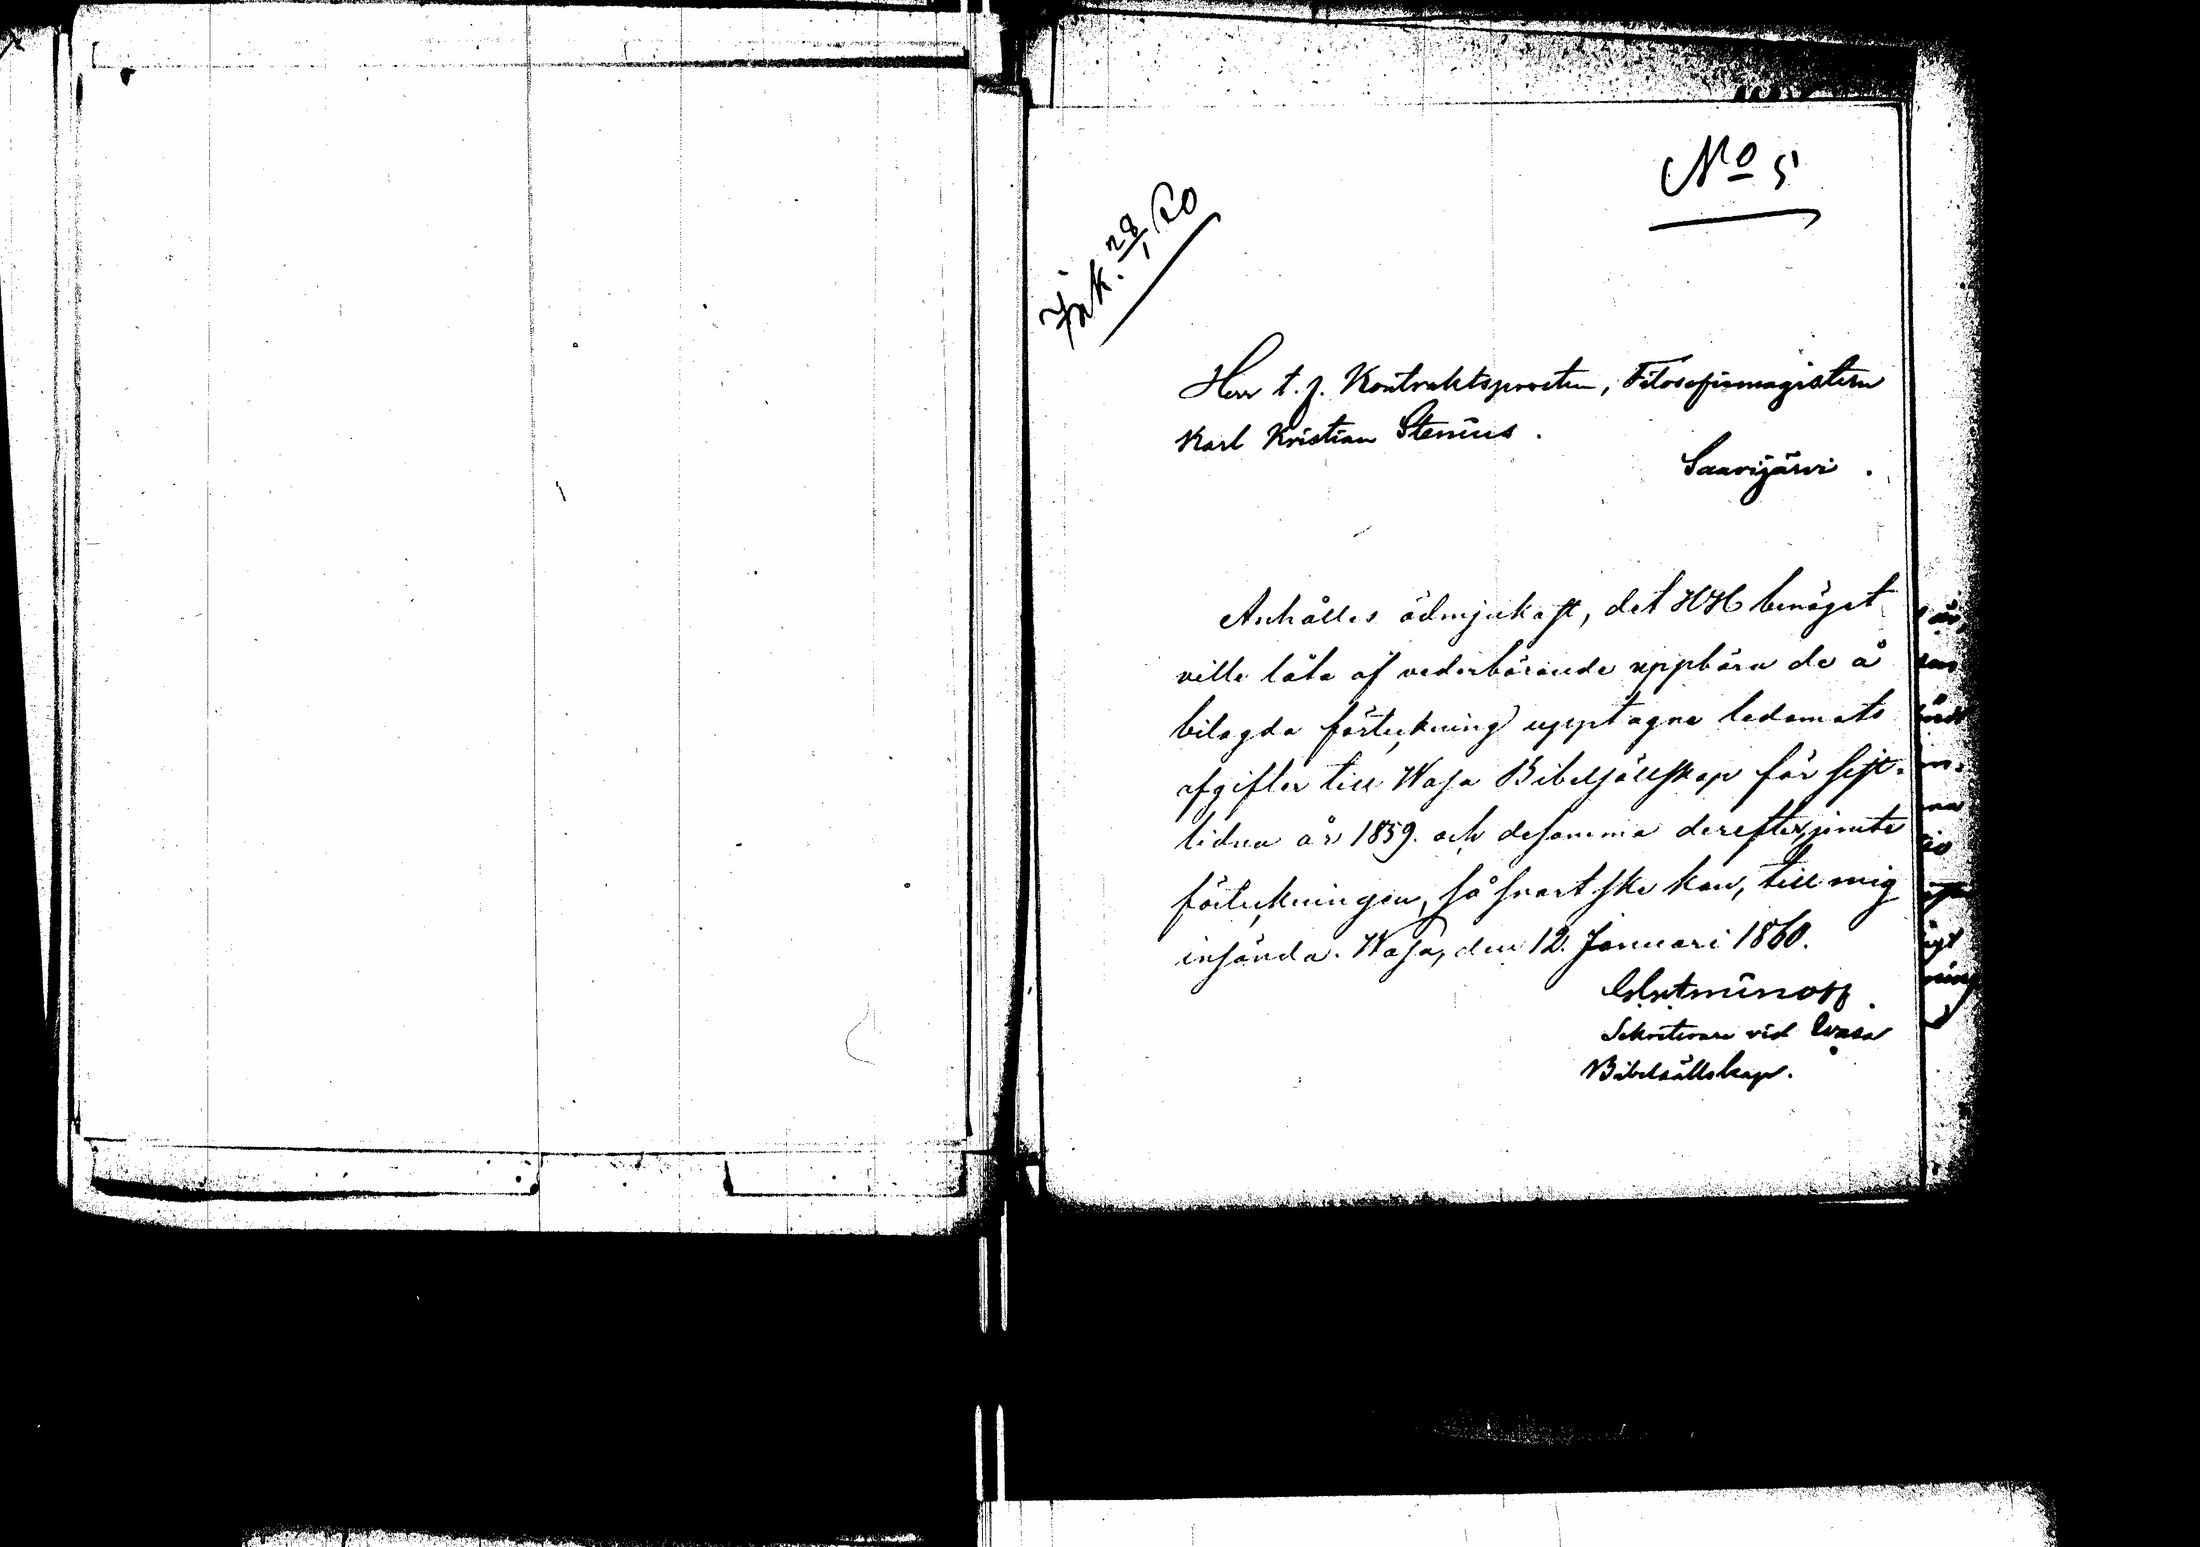 No 5
Ink. 28/1 60
Herr t. f. Kontraktsprosten, Filosofiemagistern
Karl Kristian Stenius.
Saarijärvi.
Anhålles ödmjukast, det HH benäget
ville låta af vederbörande uppbära de å
bilagda förteckning upptagne ledamots
afgifter till Wasa Bibelsällskap för sist-
lidna år 1859. och desamma derefter, jemte
förteckningen, så snart ske kan, till mig
insända. Wasa, den 12. Januari 1860.
Sekreterare vid Wasa
Bibelsällskap.